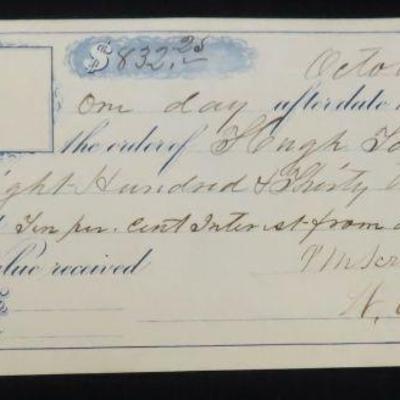 $832.25
Octo
One day after date
the order of Hugh
ight Hundred & Thirty
Ten per. cent Interest from
alue received
$